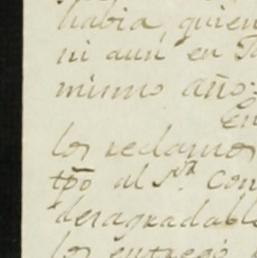 habia, quien
ni aun en
mismo año:
En
los reclamos
tpō al Sʳ. Con
desagradable
los entregó